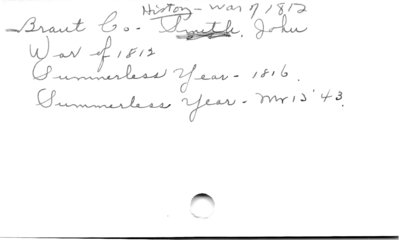 History - War of 1812
Brant Co. - Smith, John
War of 1812
Summerless Year - 1816.
Summerless Year - Mr 12' 43.